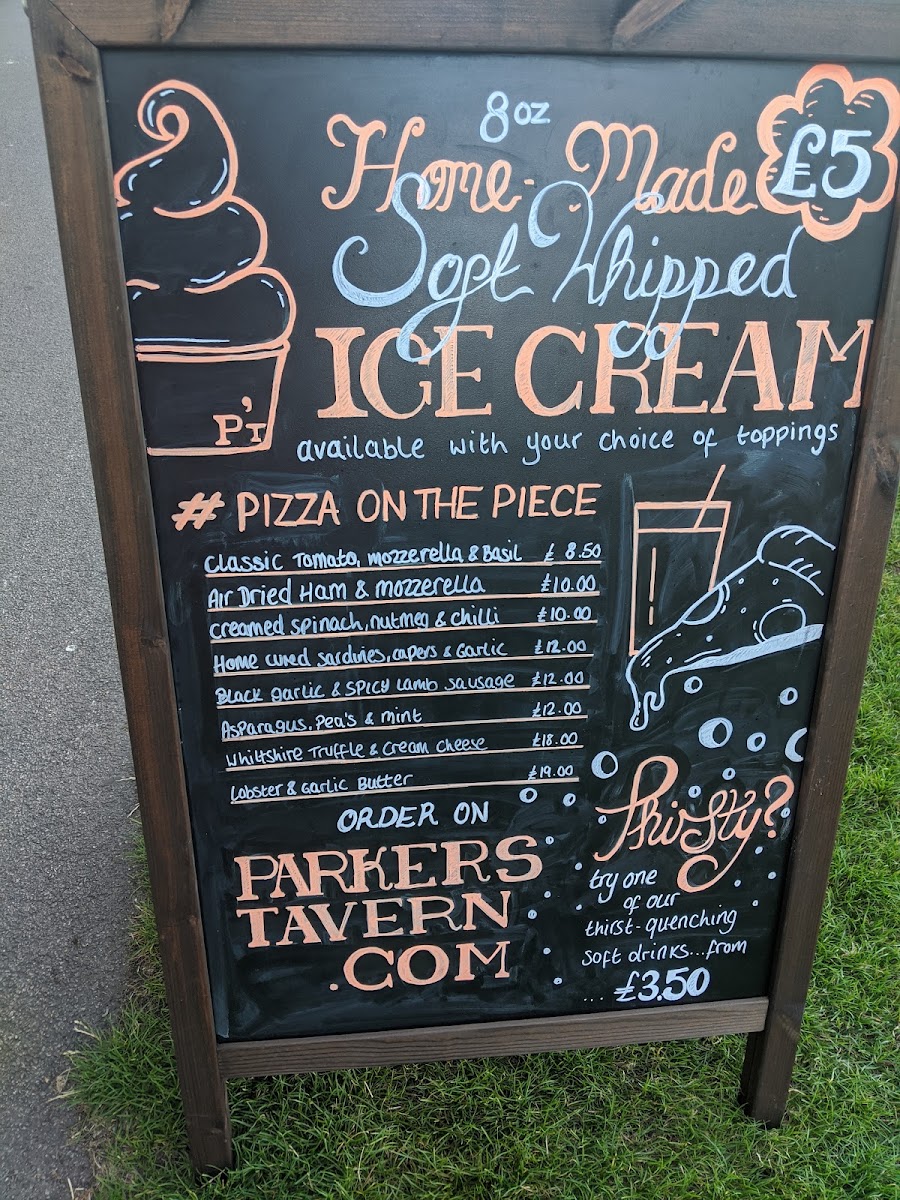 8oz
Home-Made
£5
Soft Whipped
ICE CREAM
available with your choice of toppings
P'T
# PIZZA ON THE PIECE
Classic Tomato, mozzerella, & Basil £ 8.50
Air Dried Ham & mozzerella £10.00
creamed spinach, nutmeg & chilli £10.00
Home cured sardines, capers & Garlic £12.00
Black garlic & spicy lamb sausage £12.00
Asparagus, Pea's & mint £12.00
Whiltshire Truffle & Cream cheese £18.00
Lobster & Garlic Butter £19.00
ORDER ON
PARKERS
TAVERN
.COM
Thirsty?
try one
of our
thirst-quenching
soft drinks...from
... £3.50